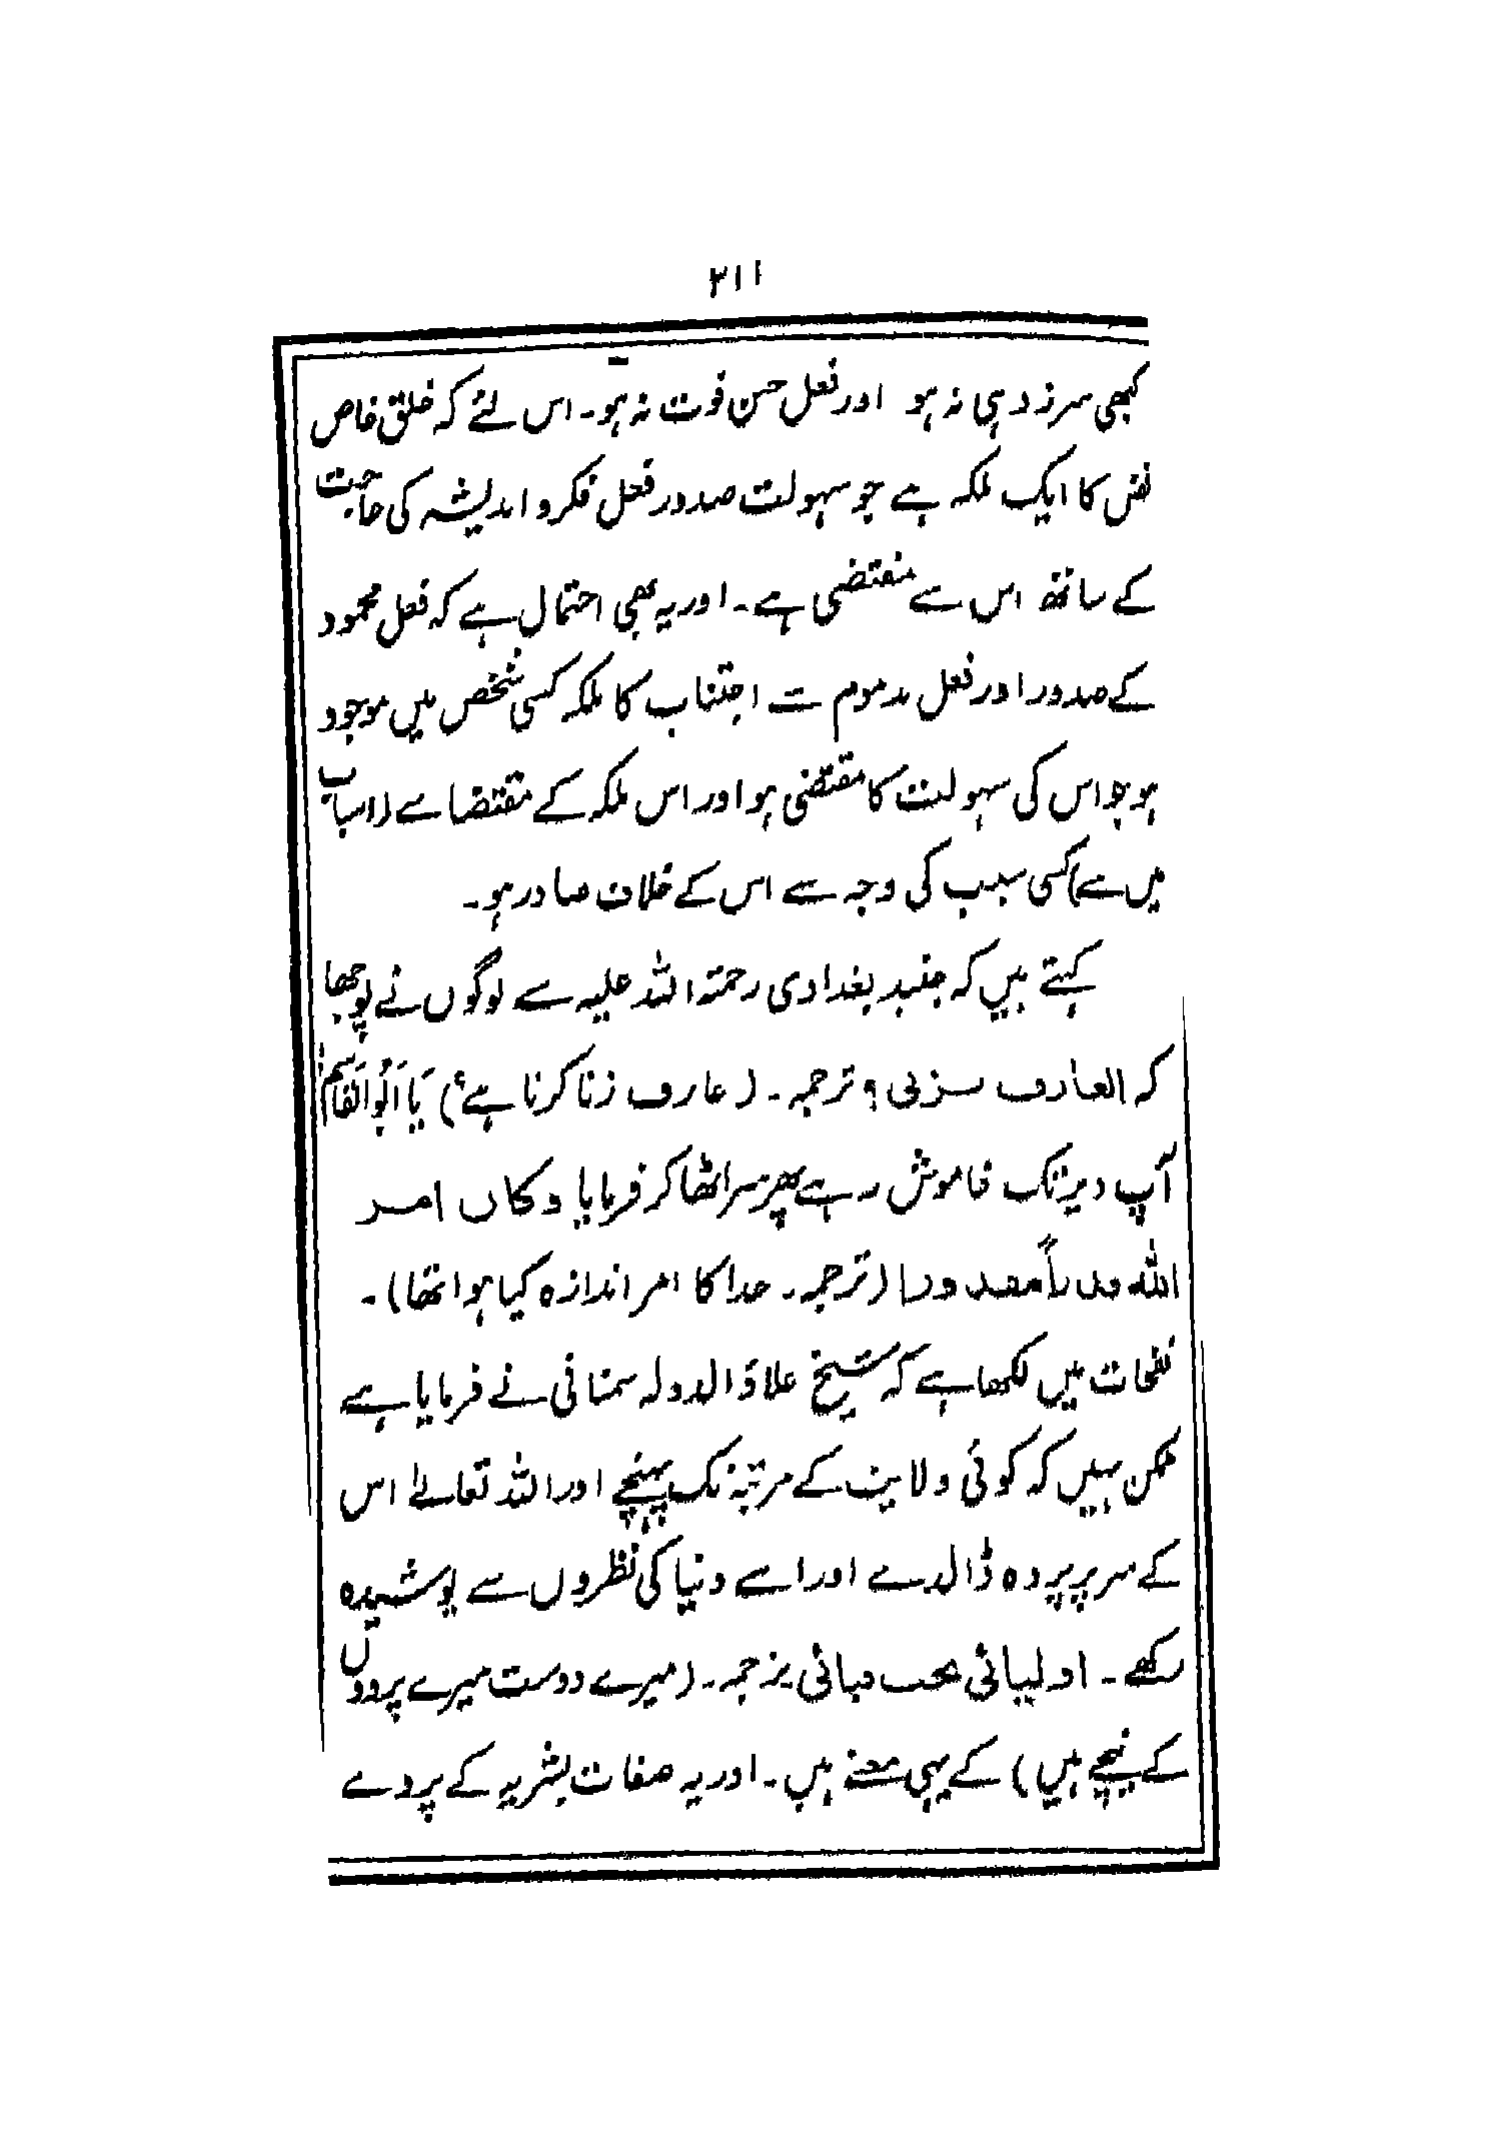 ۲۱۱
کبھی سرزد ہی نہ ہو اور فعل حسن فوت نہ ہو۔ اس لئے کہ خلق خاص
نفس کا ایک ملکہ ہے جو سہولت صدور فعل فکر و اندیشہ کی حاجت
کے ساتھ اس سے مقتضی ہے۔ اور یہ بھی احتمال ہے کہ فعل محمود
کے صدور اور فعل مذموم سے اجتناب کا ملکہ کسی شخص میں موجود
ہو جو اس کی سہولت کا مقتضی ہو اور اس ملکہ کے مقتضا سے (اسباب
میں سے) کسی سبب کی وجہ سے اس کے خلاف صادر ہو۔
کہتے ہیں کہ جنید بغدادی رحمۃ اللہ علیہ سے لوگوں نے پوچھا
کہ العارف یزنی؟ ترجمہ۔ (عارف زنا کرتا ہے؟) یَا اَبُوالقَاسِم
آپ دیر تک خاموش رہے پھر سر اٹھا کر فرمایا وکان امر
اللہ قدراً مقدورا (ترجمہ۔ خدا کا امر اندازہ کیا ہوا تھا)۔
نفحات میں لکھا ہے کہ شیخ علاؤ الدولہ سمنانی نے فرمایا ہے
ممکن نہیں کہ کوئی ولایت کے مرتبہ تک پہنچے اور اللہ تعالےٰ اس
کے سر پر پردہ ڈالدے اور اسے دنیا کی نظروں سے پوشیدہ
رکھے۔ اولیائی تحت قبائی ترجمہ۔ (میرے دوست میرے پردوں
کے نیچے ہیں) کے یہی معنے ہیں۔ اور یہ صفات بشریہ کے پردے